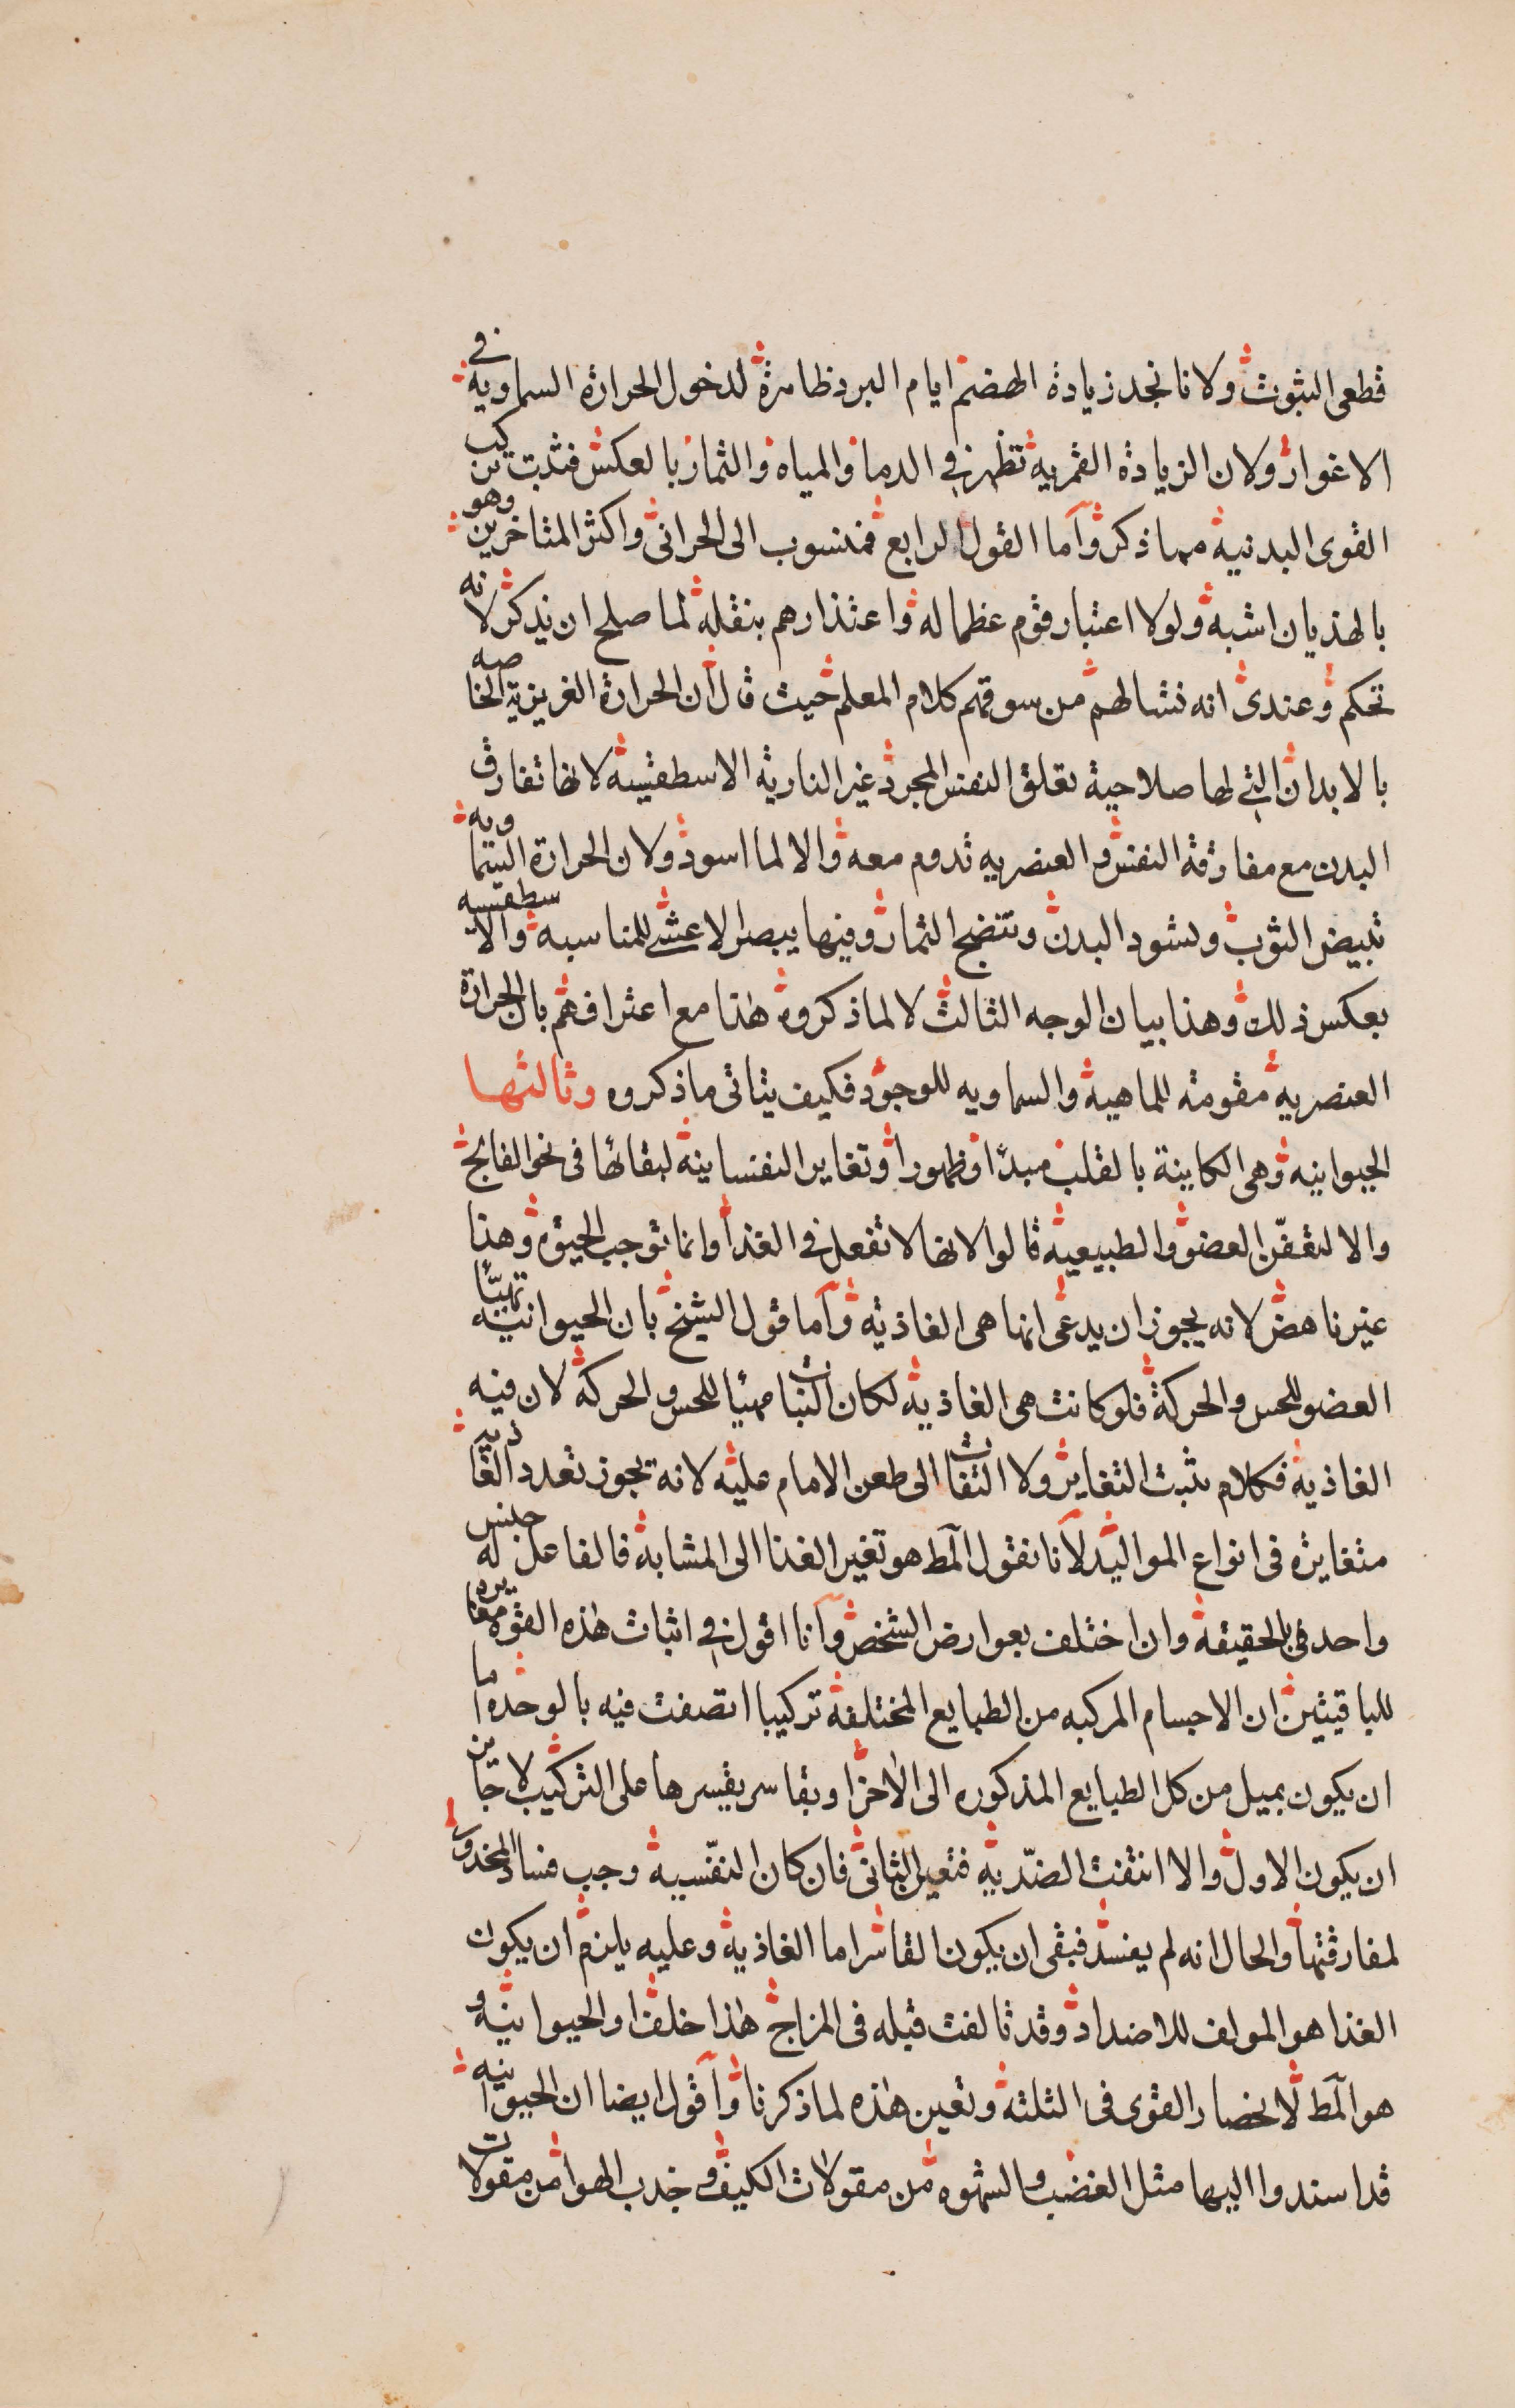 قطعى الثبوت ولانا نجد زيادة الهضم ايام البرد ظاهرة لدخول الحرارة السماوية فى
الاغوار ولان الزيادة القمرية تظهر فى الدما والمياه والثمار بالعكس فثبت تركيب
القوى البدنية مما ذكر واما القول الرابع فمنسوب الى الحرانى واكثر المتاخرين وهو
بالهذيان اشبه ولولا اعتبار قوم عظما له واعتذارهم بنقله لما صلح ان يذكر لانه
تحكم وعندى انه نشالهم من سوقهم كلام المعلم حيث قال ان الحرارة الغريزية الخاصه
بالابدان التى لها صلاحية تعلق النفس المجرد غير النارية الاسطقسيه لانها تفارق
البدن مع مفارقة النفس والعنصريه تدوم معه والا لما اسود ولان الحرارة السماويه
تبيض الثوب وتسود البدن وتنضج الثمار وفيها يبصر الاعشى للمناسبه والاسطقسيه
بعكس ذلك وهذا بيان الوجه الثالث لا لما ذكروه هذا مع اعترافهم بان الحرارة
العنصرية مقومة للماهية والسماويه للوجود فكيف يتاتى ما ذكروه وثالثها
الحيوانيه وهى الكاينة بالقلب مبدًا وظهورا وتغاير النفسانيه لبقائها فى نحو الفالج
والا لتعفّن العضو والطبيعيه قالوا لانها لا تفعل فى الغذا وانما توجب الحيوه وهذا
غير ناهض لانه يجوز ان يدعى انها هى الغاذيه واما قول الشيخ بان الحيوانيه تهيّا
العضو للحس والحركة فلو كانت هى الغاذيه لكان النبات مهيا للحس والحركة لان فيه
الغاذية فكلام يثبت التغاير ولا التفات الى طعن الامام عليه لانه يجوز تعدد الغاذيه
متغايره فى انواع المواليد لانا نقول المط هو تغير الغذا الى المشابهة فالفاعل له جنس
واحد فى الحقيقة وان اختلف بعوارض الشخص وانا اقول فى اثبات هذه القوه مغايره
للباقيتين ان الاجسام المركبه من الطبايع المختلفة تركيبا اتصفت فيه بالوحده اما
ان يكون بميل من كل الطبايع المذكوره الى الاخر او بقاسر يقسرها على التركيب لا جاين
ان يكون الاول والا انتفت الضدّيه فتعين الثانى فان كان النفسيه وجب فساد المخدور
لمفارقتها والحال انه لم يفسد فبقى ان يكون القاسر اما الغاذية وعليه يلزم ان يكون
الغذا هو المولف للاضداد وقد تالفت قبله فى المزاج هذا خلف او الحيوانيه و
هو المط لانحصار القوى فى الثلثه وتعين هذه لما ذكرنا واقول ايضا ان الحيوانيه
قد اسندوا اليها مثل الغضب والشهوه من مقولات الكيف وجذب الهوا من مقولات